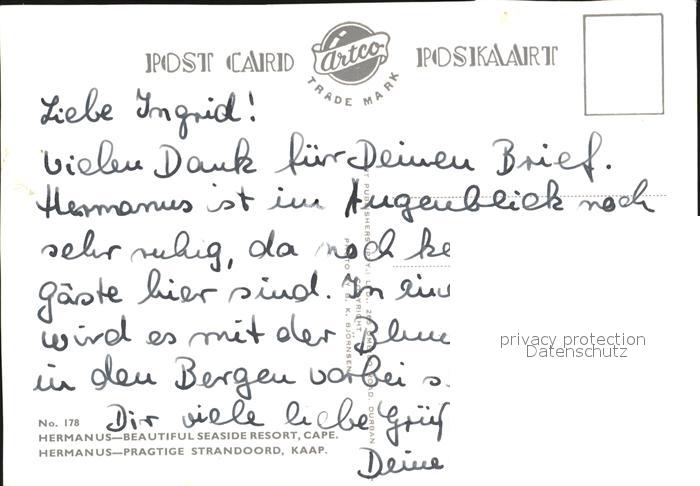 POST CARD Artco POSKAART
TRADE MARK
Liebe Ingrid!
vielen Dank für Deinen Brief.
Hermanus ist im Augenblick noch
sehr ruhig, da noch ke
gäste hier sind. In ein
wird es mit der Blum
in den Bergen vorbei s
Dir viele liebe Grüß
Deine
No. 178
HERMANUS—BEAUTIFUL SEASIDE RESORT, CAPE.
HERMANUS—PRAGTIGE STRANDOORD, KAAP.
COPYRIGHT
PHOTO BY K. BJÖRNSEN
privacy protection
Datenschutz